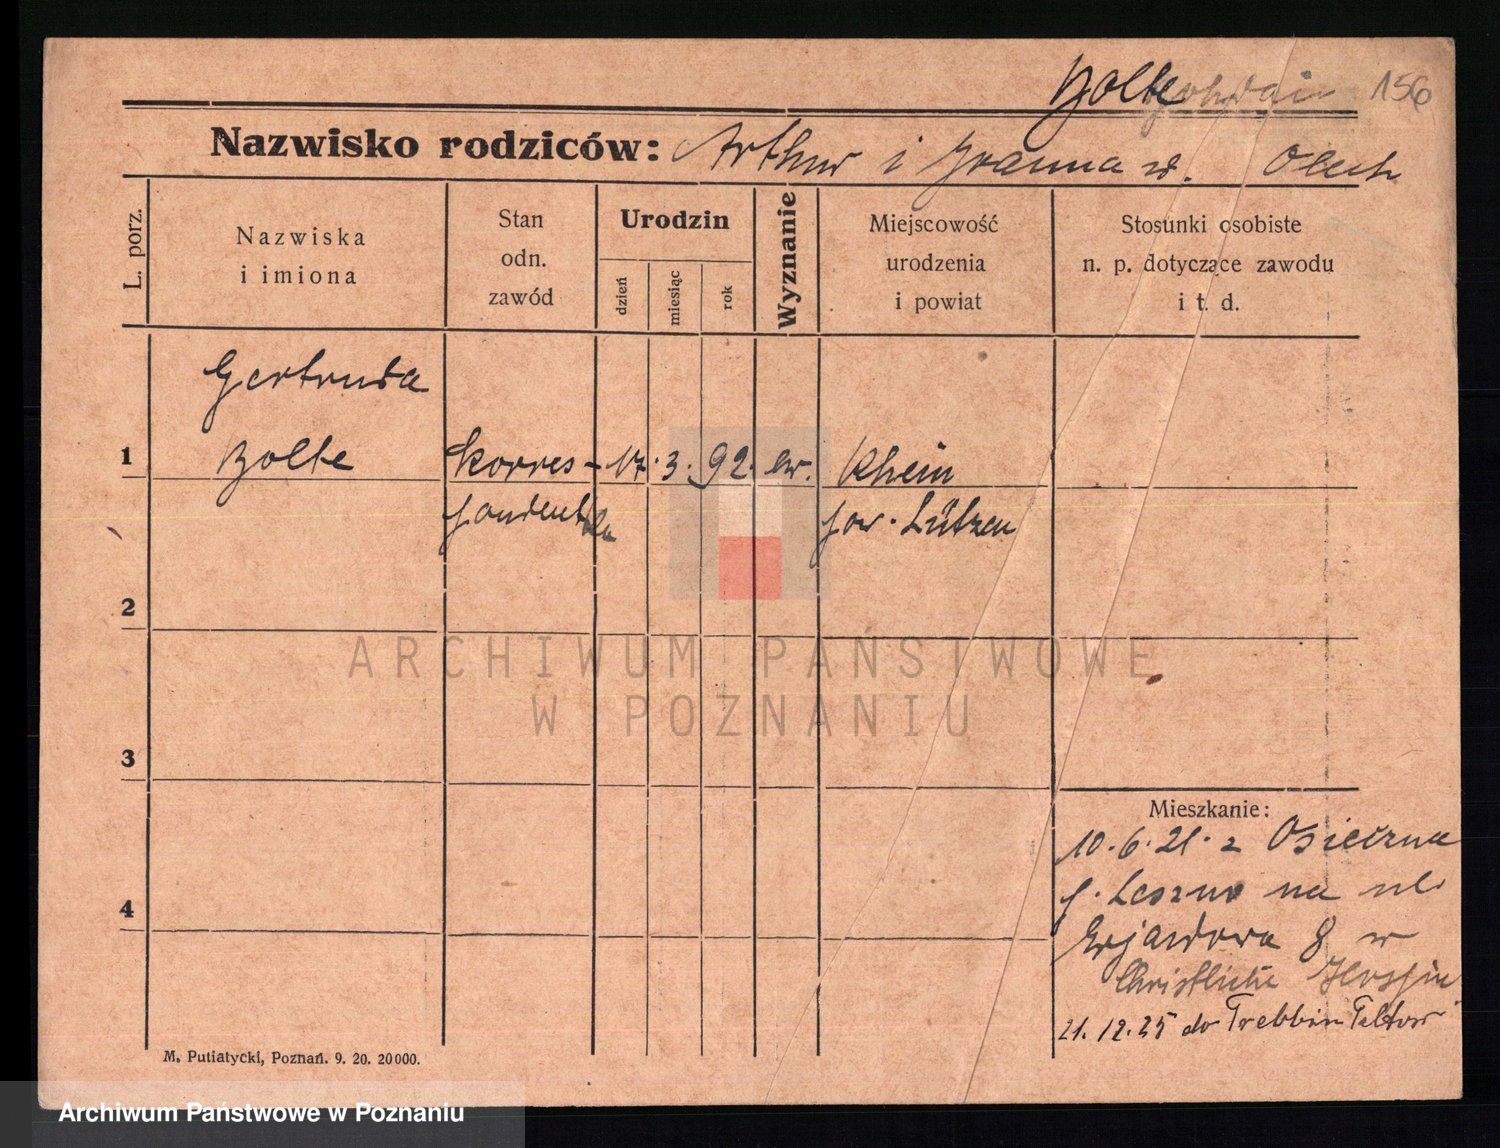 Bolte 156
Nazwisko rodziców: Arthur i Joanna z. Olech
L. porz.
Nazwiska
i imiona
Stan
odn.
zawód
Urodzin
dzień
miesiąc
rok
Wyznanie
Miejscowość
urodzenia
i powiat
Stosunki osobiste
n. p. dotyczące zawodu
i t. d.
Gertruda
1 Bolte Korres- 17. 3. 92. ew. Rhein
pondentka pow. Lützen
2
3
4
ARCHIWUM PAŃSTWOWE
W POZNANIU
Mieszkanie:
10. 6. 21. z Osieczna
p. Leszno na ul.
Wjazdowa 8 w
Christliche
21. 12. 25 do Trebbin Teltow
M. Putiatycki, Poznań. 9. 20. 20000.
Archiwum Państwowe w Poznaniu